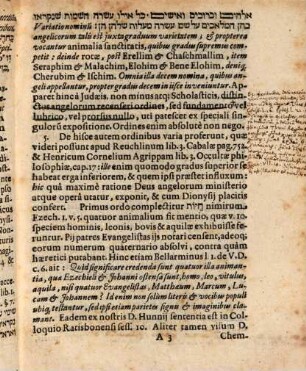 אלהים וכרובים ואישים כל אילו עשרה השמות שנקראו
בהן המלאכים על שם עשרה מעלות שלהן הן:
Variatio nominis
angelicorum talis est juxta graduum varietatem, & propterea
vocantur animalia sanctitatis, quibus gradus supremus compe-
tit: deinde רוכא, post Erellim & Chaschmallim, item
Seraphim & Malachim, Elohim & Bene Elohim, deniq;
Cherubim & Ischim. Omnia illa decem nomina, quibus an-
geli appellantur, propter gradus decem in iisse inveniuntur. A-
pud Christianos patres, non minus atq; Scholasticis, distin-
ctus angelorum recenseri ordines, sed fundamento vel
lubrico, vel prorsus nullo, uti patescet ex speciali sin-
gulorū expositione. Ordines enim absolutè non nego.
5. De hisce autem ordinibus varia proferunt, quæ
videri possunt apud Reuchlinum lib. 3. Cabalæ pag. 752.
& Henricum Cornelium Agrippam lib. 3. Occultæ phi-
losophiæ, cap. 17. ille enim quomodo gradus superior se
habeat erga inferiorem, & quem propterea influxum:
hic quâ maximè ratione Deus angelorum ministerio
utque operâ utatur, exponit, & cum Dionysii placitis
confert. Primus ordo completitur חיות nominatos
Ezech. 1. v. 5. quatuor animalium fit mentio, quæ v. 10.
speciem hominis, leonis, bovis & aquilæ exhibuisse fe-
runtur. Per patres Evangelistas iis notari censent, adeoq;
eorum numerum quaternario absolvi, contra quàm
hæretici putabant. Hinc etiam Bellarminus l. 1. de V. D.
c. 6. ait: Quid significare credenda sunt quatuor illa animan-
tia, quæ Ezechieli & Johanni ostensa sunt, homo, leo, vitulus,
aquila, nisi quatuor Evangelistas, Matthæum, Marcum, Lu-
cam & Johannem? Id enim non solùm literis & vocibus populi
ubiq; testantur, sed ipsi etiam parietes signum & imaginesq; cla-
mant. Eadem ex nostris D. Hunnii sententia est in Col-
loquio Ratisbonensi sess. 10. Aliter tamen visum D.
A 3 Chem-